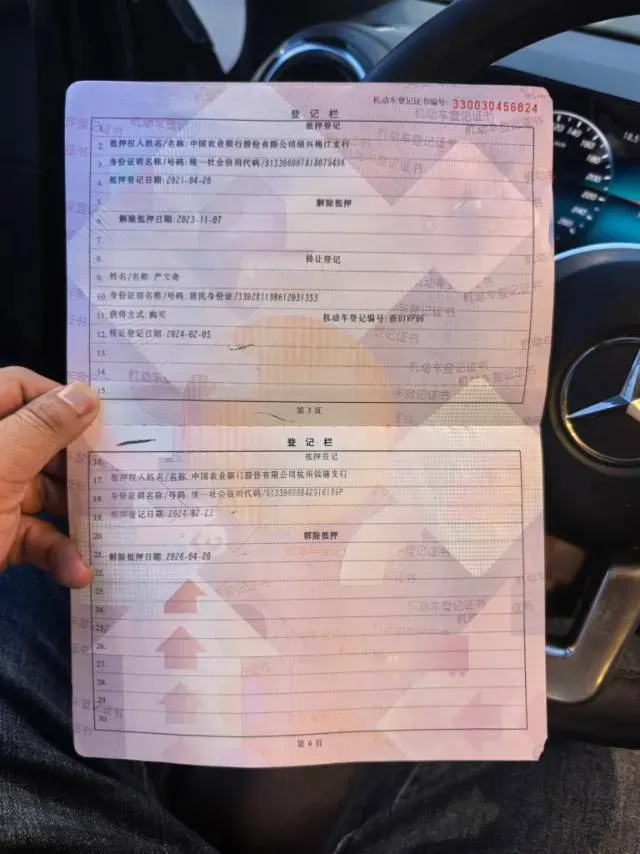 机动车登记证书编号: 330030456824
登 记 栏
1. 抵押登记
2. 抵押权人姓名/名称: 中国农业银行股份有限公司绍兴柯江支行
3. 身份证明名称/号码: 统一社会信用代码/
4. 抵押登记日期: 2021-04-20
5. 解除抵押
6. 解除抵押日期: 2023-11-07
7.
8. 转让登记
9. 姓名/名称: 严文尧
10. 身份证明名称/号码: 居民身份证/330281198612031353
11. 获得方式: 购买 机动车登记编号: 浙B1VP96
12. 转让登记日期: 2024-02-05
13.
14.
15.
第 3 页
登 记 栏
16. 抵押登记
17. 抵押权人姓名/名称: 中国农业银行股份有限公司杭州钱塘支行
18. 身份证明名称/号码: 统一社会信用代码/
19. 抵押登记日期: 2024-02-23
20. 解除抵押
21. 解除抵押日期: 2026-04-20
22.
23.
24.
25.
26.
27.
28.
29.
30.
第 4 页